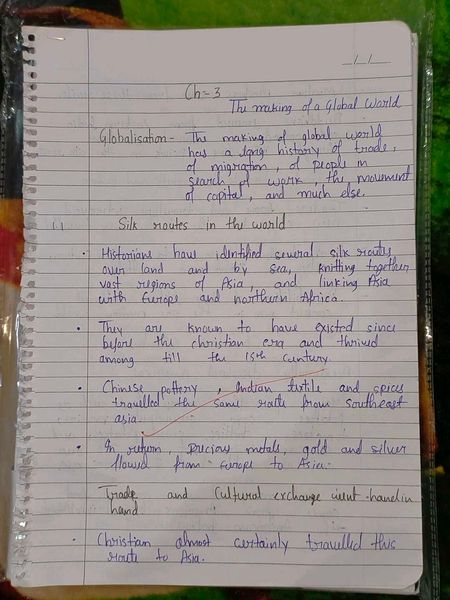 Ch-3
The making of a Global World
Globalisation - The making of global world
has a long history of trade,
of migration, of people in
search of work, the movement
of capital, and much else.
1.1 Silk routes in the world
• Historians have identified several silk routes
over land and by sea, knitting together
vast regions of Asia, and linking Asia
with Europe and northern Africa.
• They are known to have existed since
before the christian era and thrived
among till the 15th century.
• Chinese pottery, Indian textile and spices
travelled the same route from southeast
asia.
• In return precious metals, gold and silver
flowed from Europe to Asia.
Trade and Cultural exchange went hand in
hand
• Christian almost certainly travelled this
route to Asia.